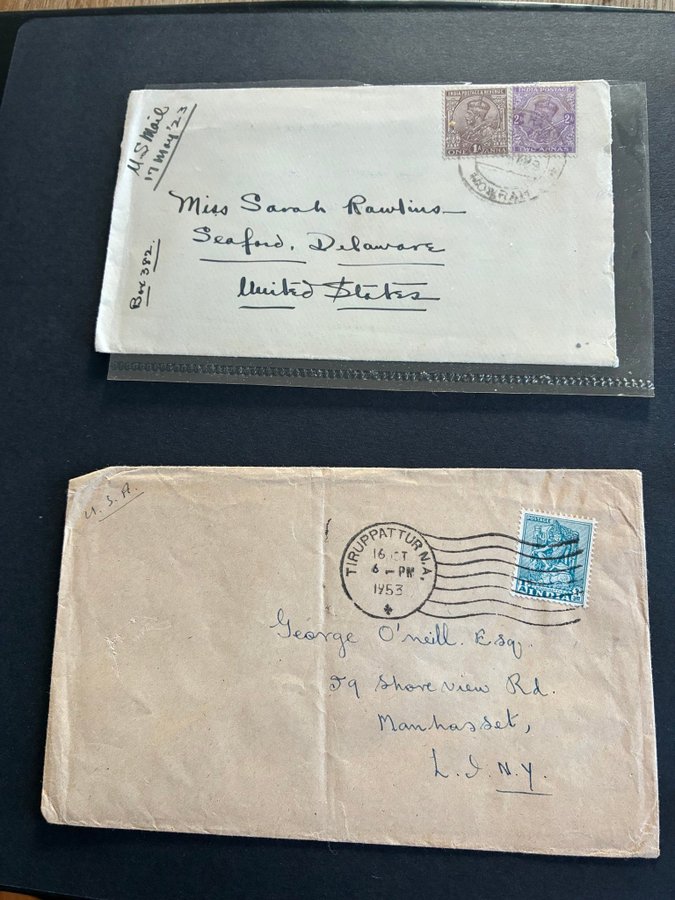 U.S Mail
17 May '23
INDIA POSTAGE & REVENUE
1A
ONE ANNA
INDIA POSTAGE
2As
TWO ANNAS
Miss Sarah Rawlins
Seaford, Delaware
United States
Box 382.
U.S.A.
TIRUPPATTUR N.A.
16 CT
6 - PM
1953
POSTAGE
INDIA
George O'neill. Esq.
59 Shore view Rd.
Manhasset,
L. I. N.Y.